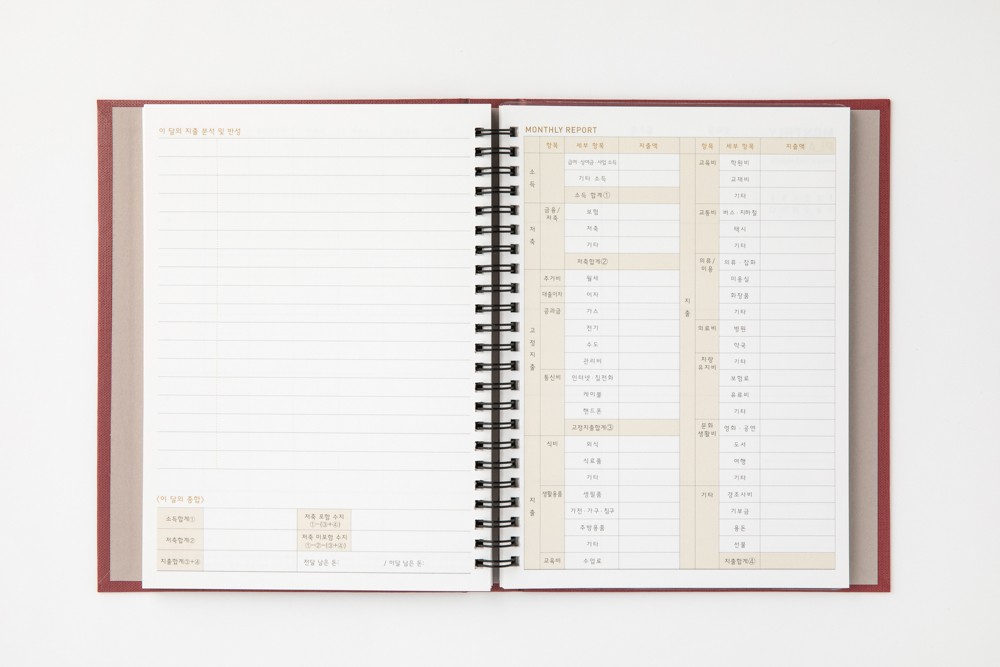 이 달의 지출 분석 및 반성
(이 달의 종합)
소득합계①
저축 포함 수지
①-(③+④)
저축합계②
저축 미포함 수지
①-②-(③+④)
지출합계③+④
전달 남은 돈:
/ 이달 남은 돈:
MONTHLY REPORT
항목 세부 항목 지출액
소득
급여·상여금·사업 소득
기타 소득
소득 합계①
저축
금융/
저축
보험
저축
기타
저축합계②
고정지출
주거비 월세
대출이자 이자
공과금 가스
전기
수도
관리비
통신비 인터넷·집전화
케이블
핸드폰
고정지출합계③
지출
식비 외식
식료품
기타
생활용품 생필품
가전·가구·침구
주방용품
기타
교육비 수업료
항목 세부 항목 지출액
지출
교육비 학원비
교재비
기타
교통비 버스·지하철
택시
기타
의류/
미용
의류·잡화
미용실
화장품
기타
의료비 병원
약국
기타
차량
유지비
보험료
유류비
기타
문화
생활비
영화·공연
도서
여행
기타
기타 경조사비
기부금
용돈
선물
지출합계④